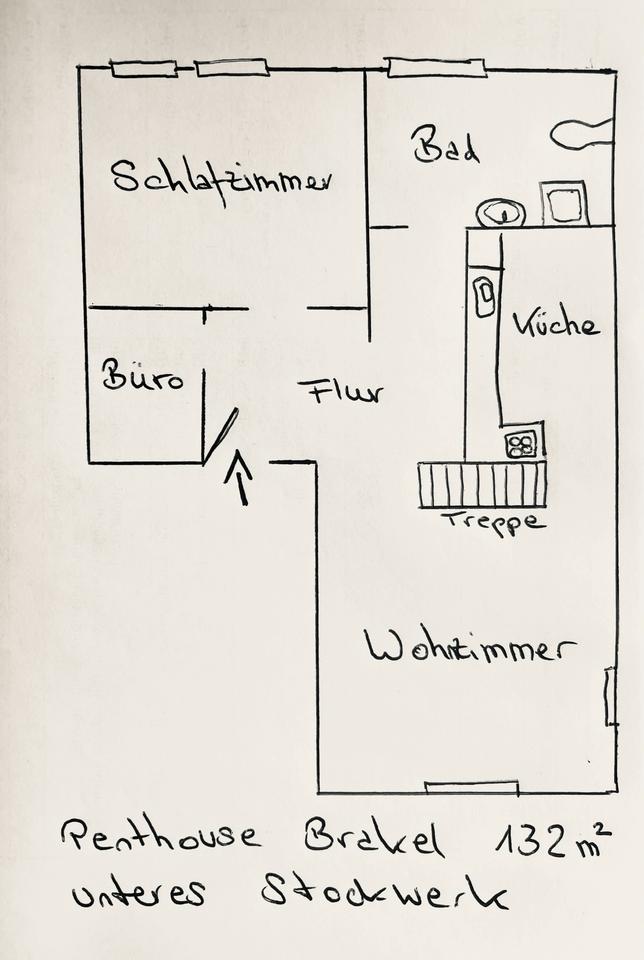 Bad
Schlafzimmer
Küche
Büro
Flur
Treppe
Wohnzimmer
Penthouse Brakel 132 m²
unteres Stockwerk